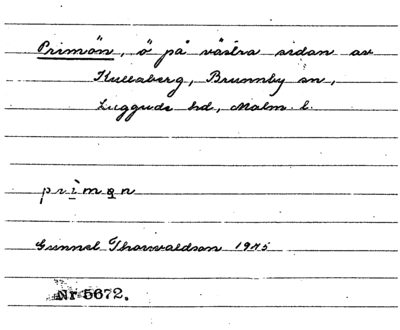 Primön, ö på västra sidan av
Kullaberg, Brunnby sn,
Luggude hd, Malm. l.
primǫn
Gunnel Thorwaldson 1945
Nr 5672.